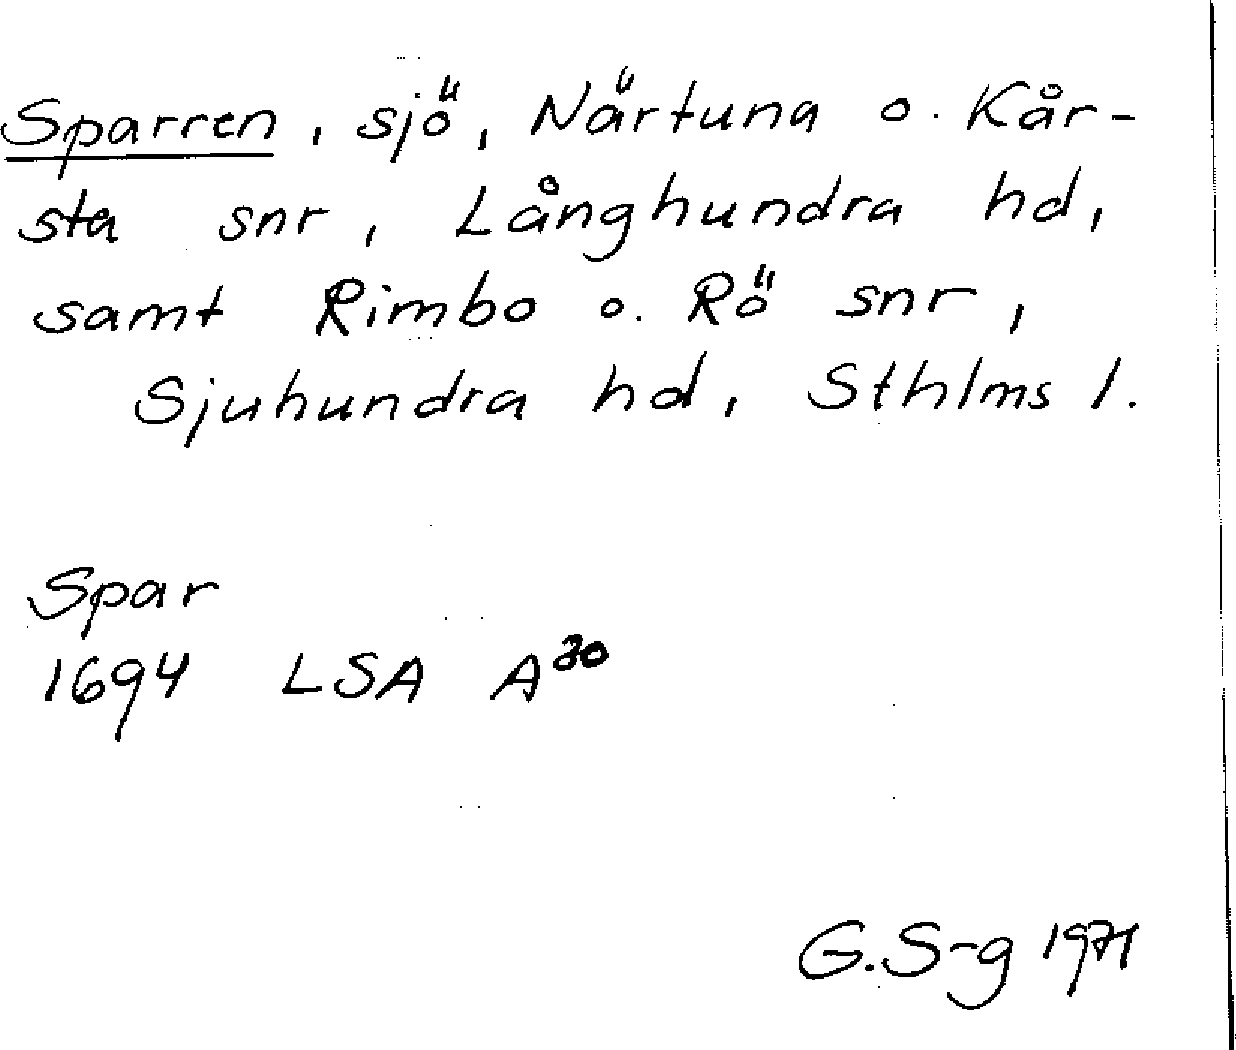 Sparren, sjö, Närtuna o. Kår-
sta snr, Långhundra hd,
samt Rimbo o. Rö snr,
Sjuhundra hd, Sthlms l.
Spar
1694 LSA A³⁰
G.S-g 1971